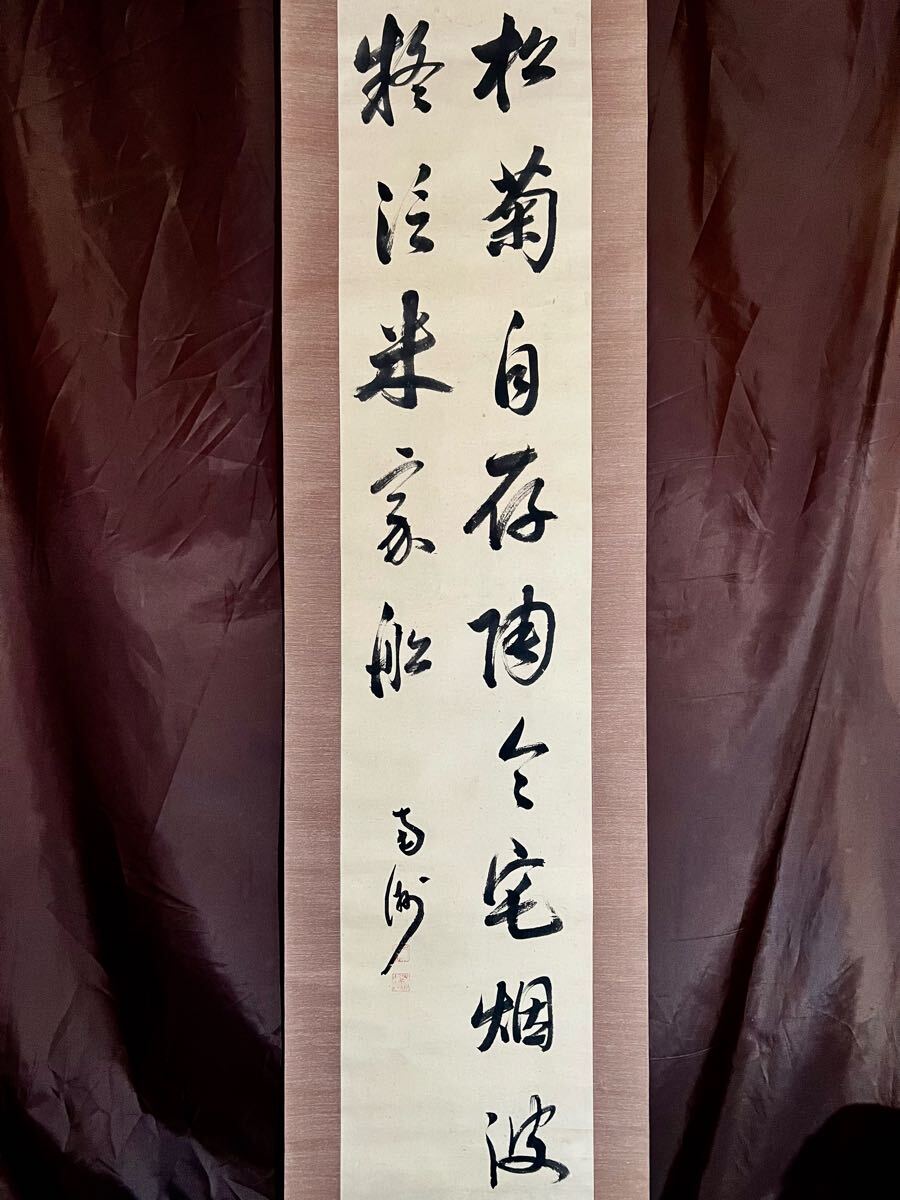 松菊自存陶令宅烟波
凝泛米家船
南洲